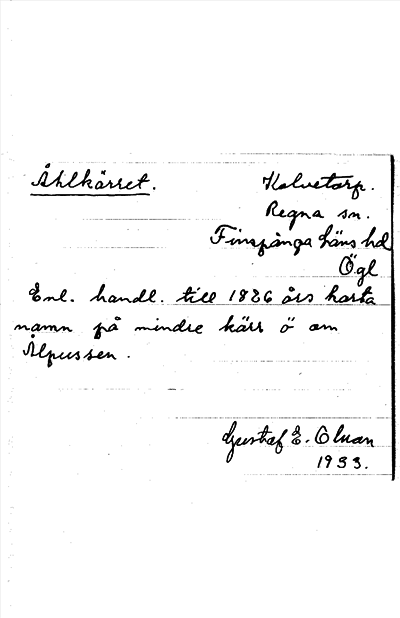 Åhlkärret. Kalvetorp.
Regna sn.
Finspånga läns hd
Ögl
Enl. handl. till 1826 års karta
namn på mindre kärr ö om
Ålpussen.
Gustaf E. Olson
1933.